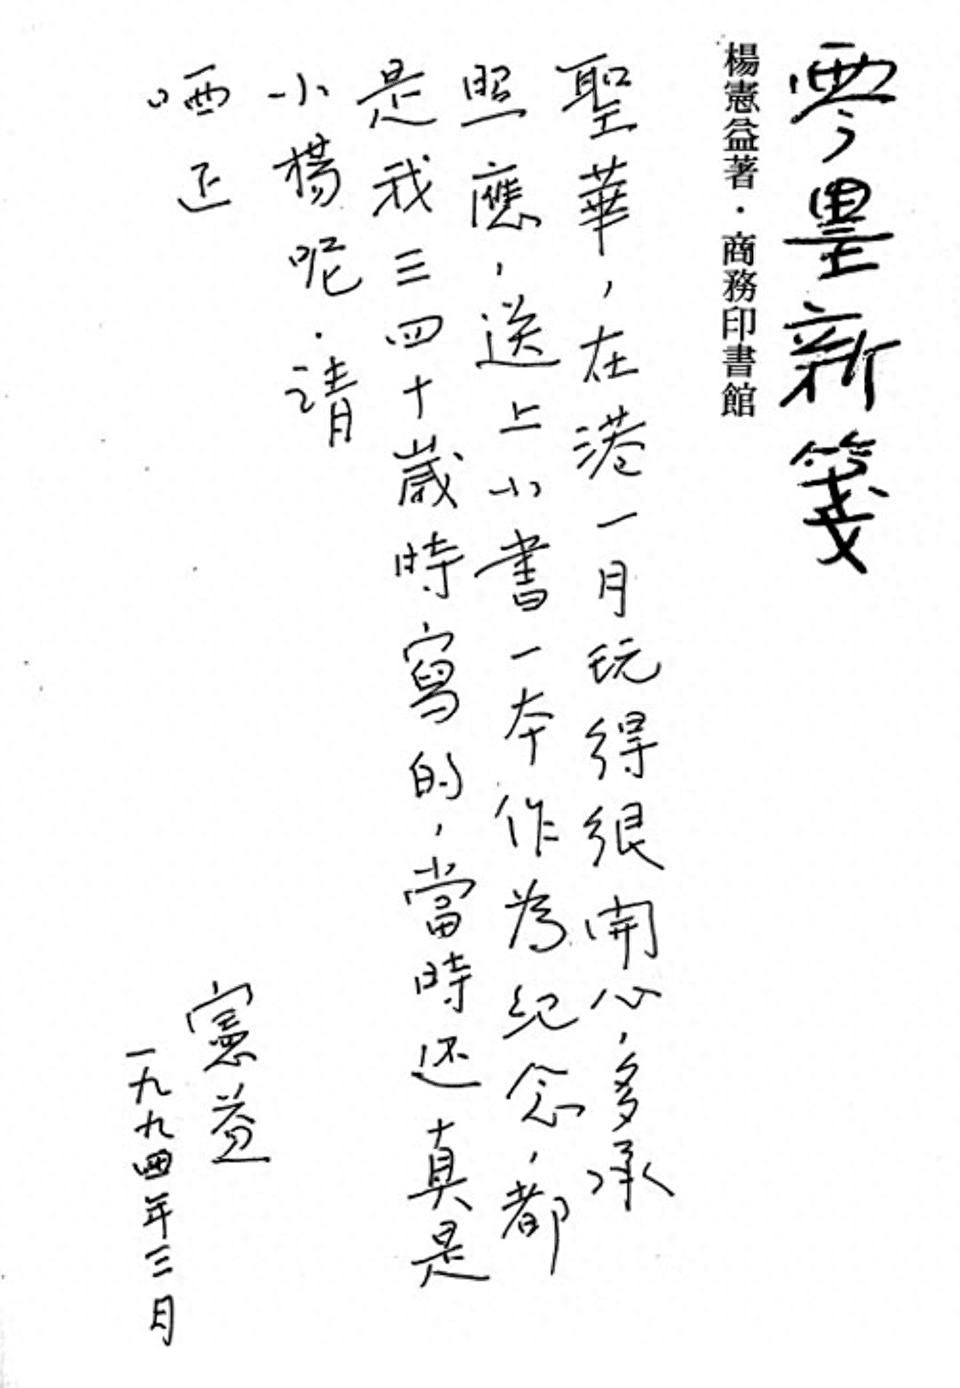 零墨新箋
楊憲益著·商務印書館
聖華，在港一月玩得很開心，多承
照應，送上小書一本作為纪念，都
是我三四十歲時寫的，當時还真是
小楊呢．請
哂正
憲益
一九九四年三月